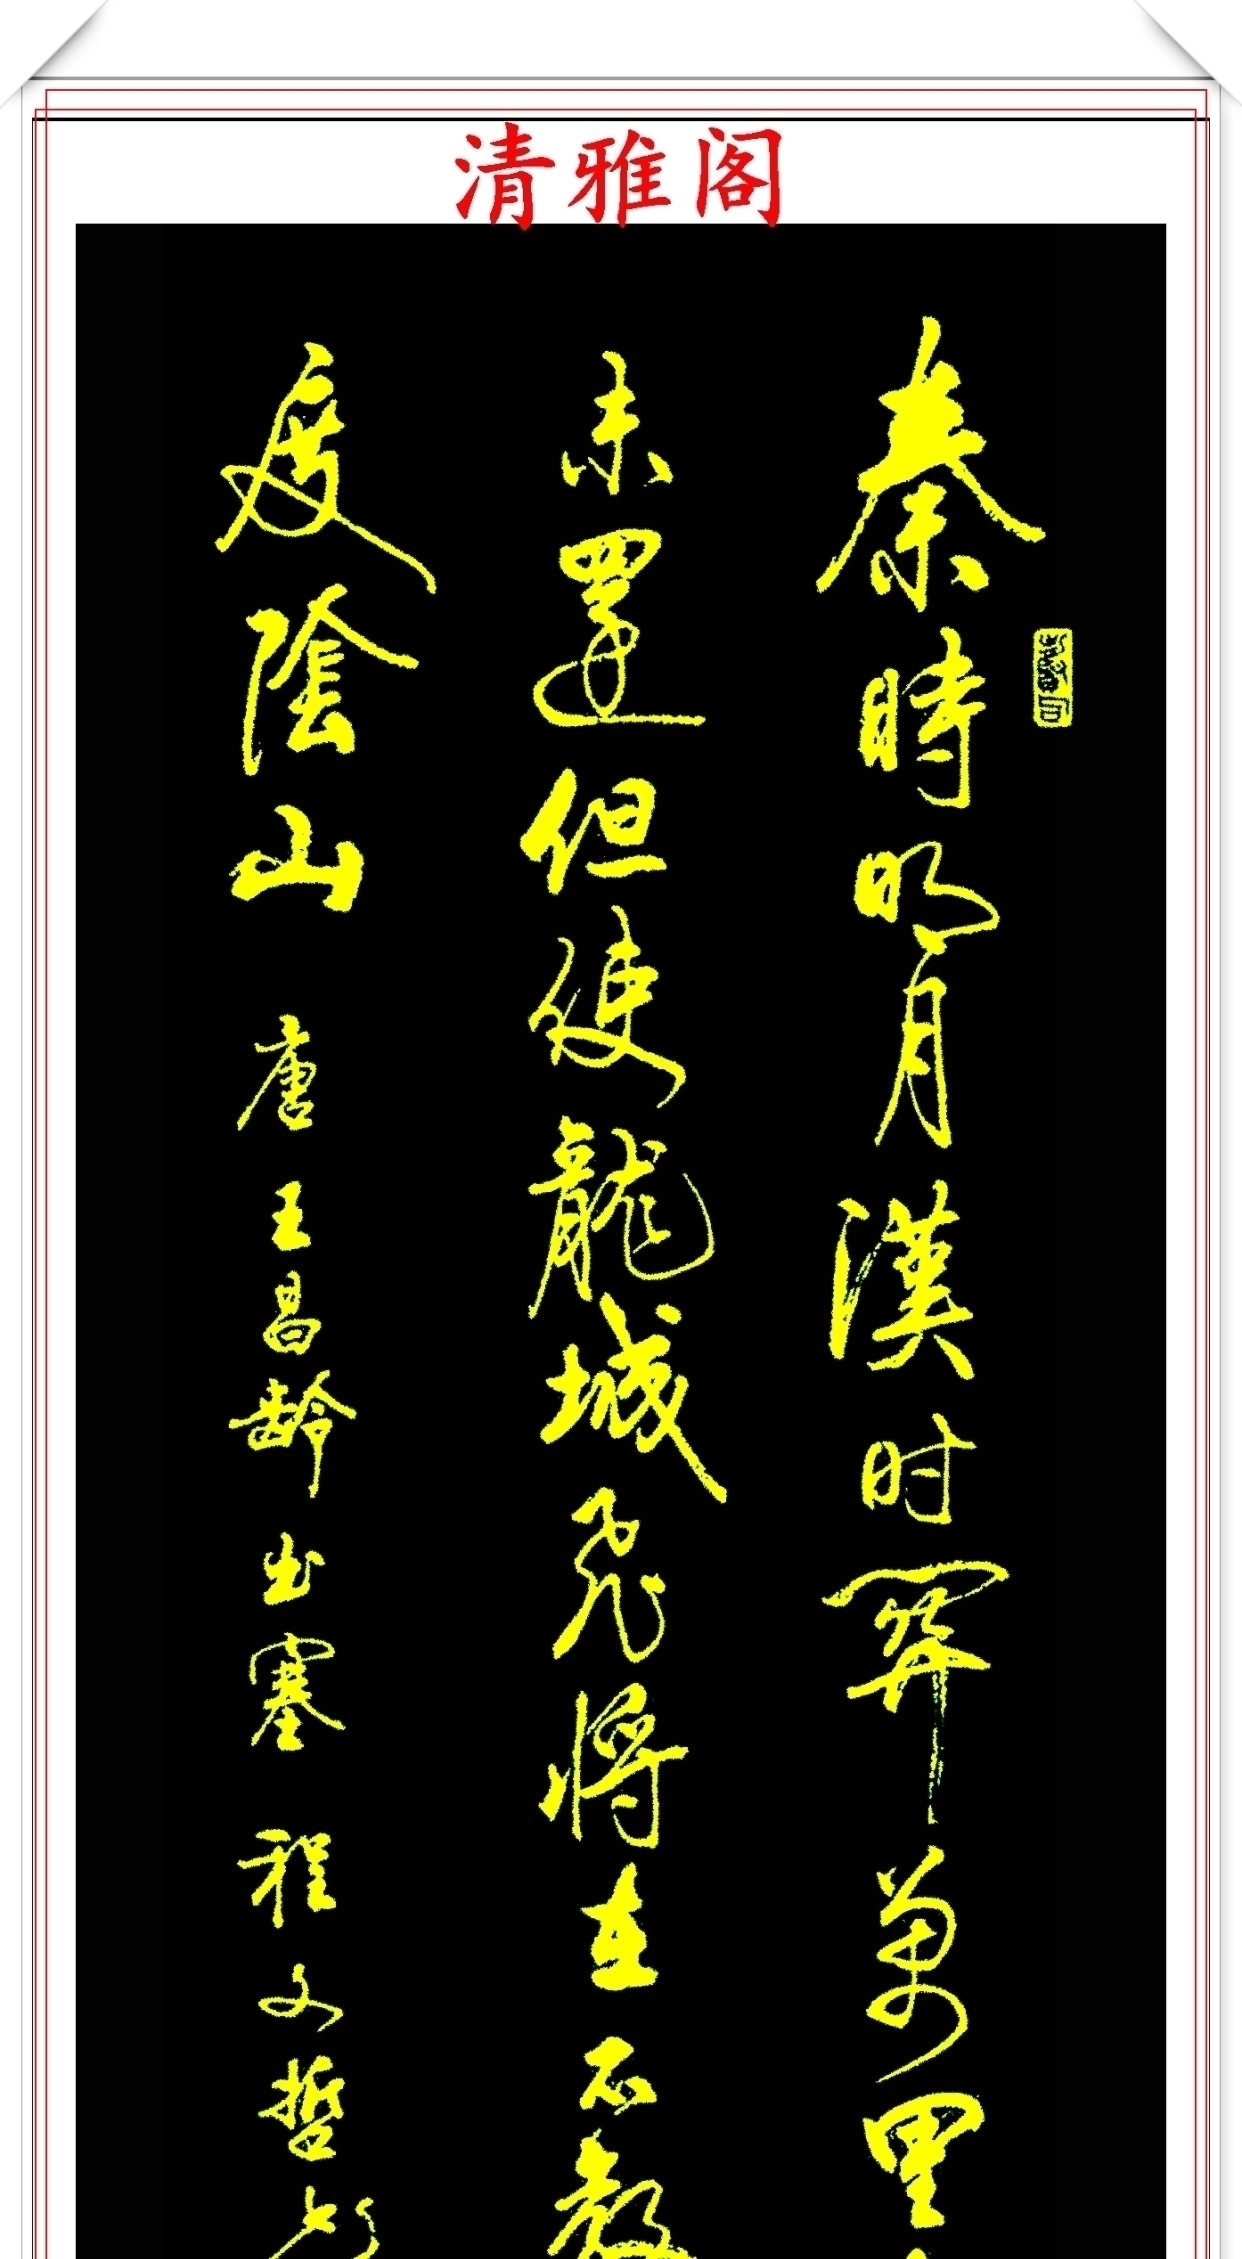 清雅阁
秦時明月漢时關萬里
未還但使龍城飛將在不教
度陰山 唐王昌齡出塞 程文哲